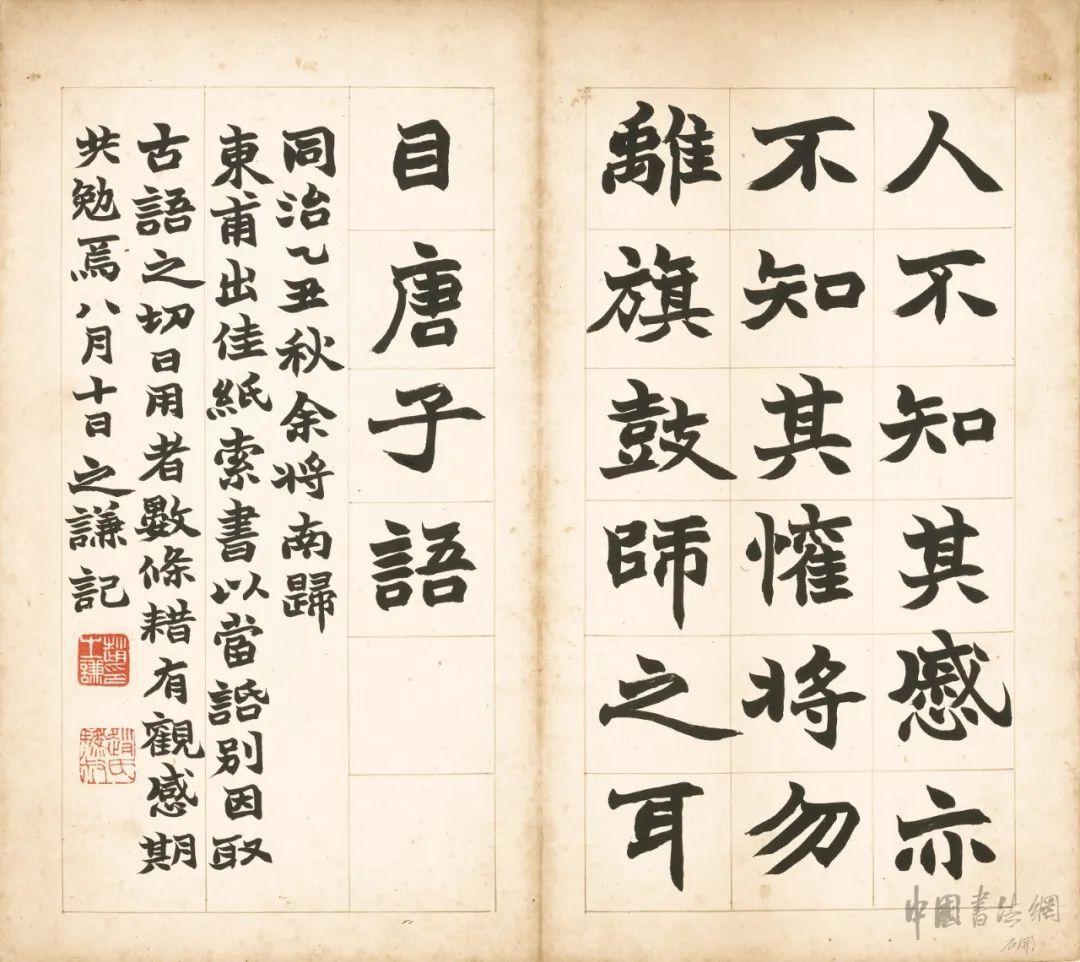 人不知其慼亦
不知其懽将勿
離旗鼓師之耳
目唐子語
同治乙丑秋余将南歸
東甫出佳紙索書以當話別因取
古語之切日用者數條耤有觀感期
共勉焉八月十日之謙記
中國書法網